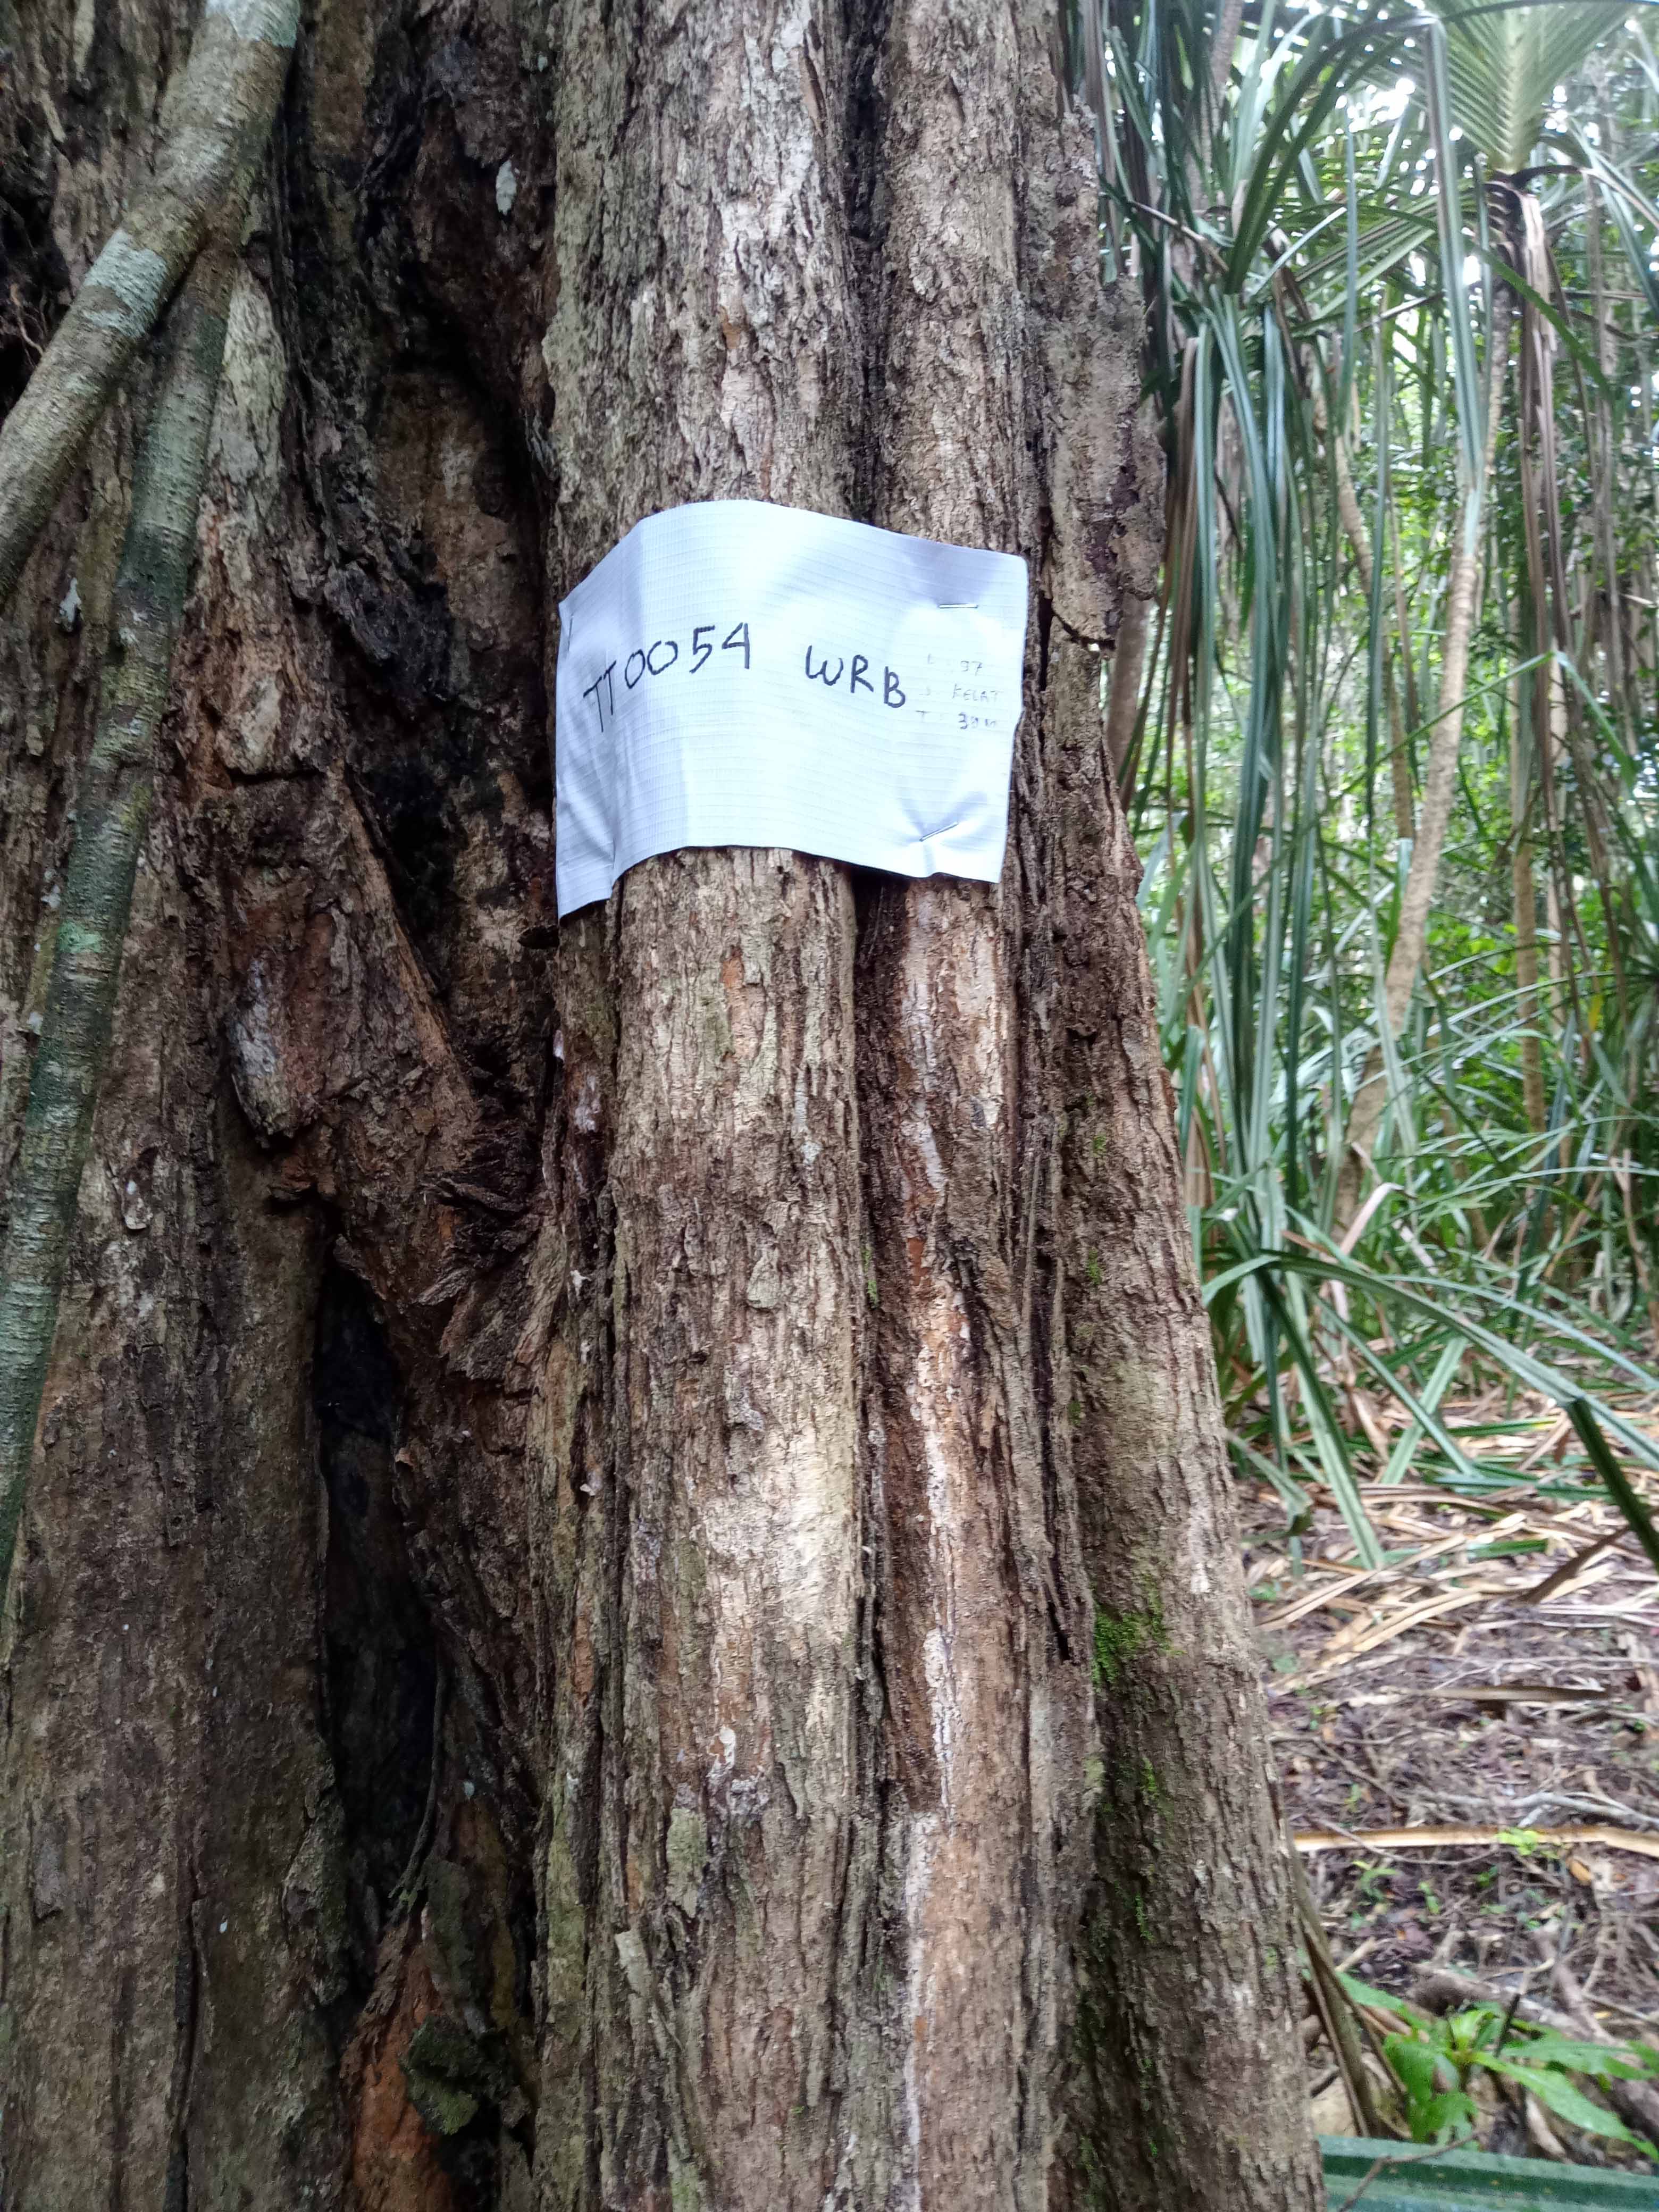 TT0054 WRB
97
KELAT
T 30m